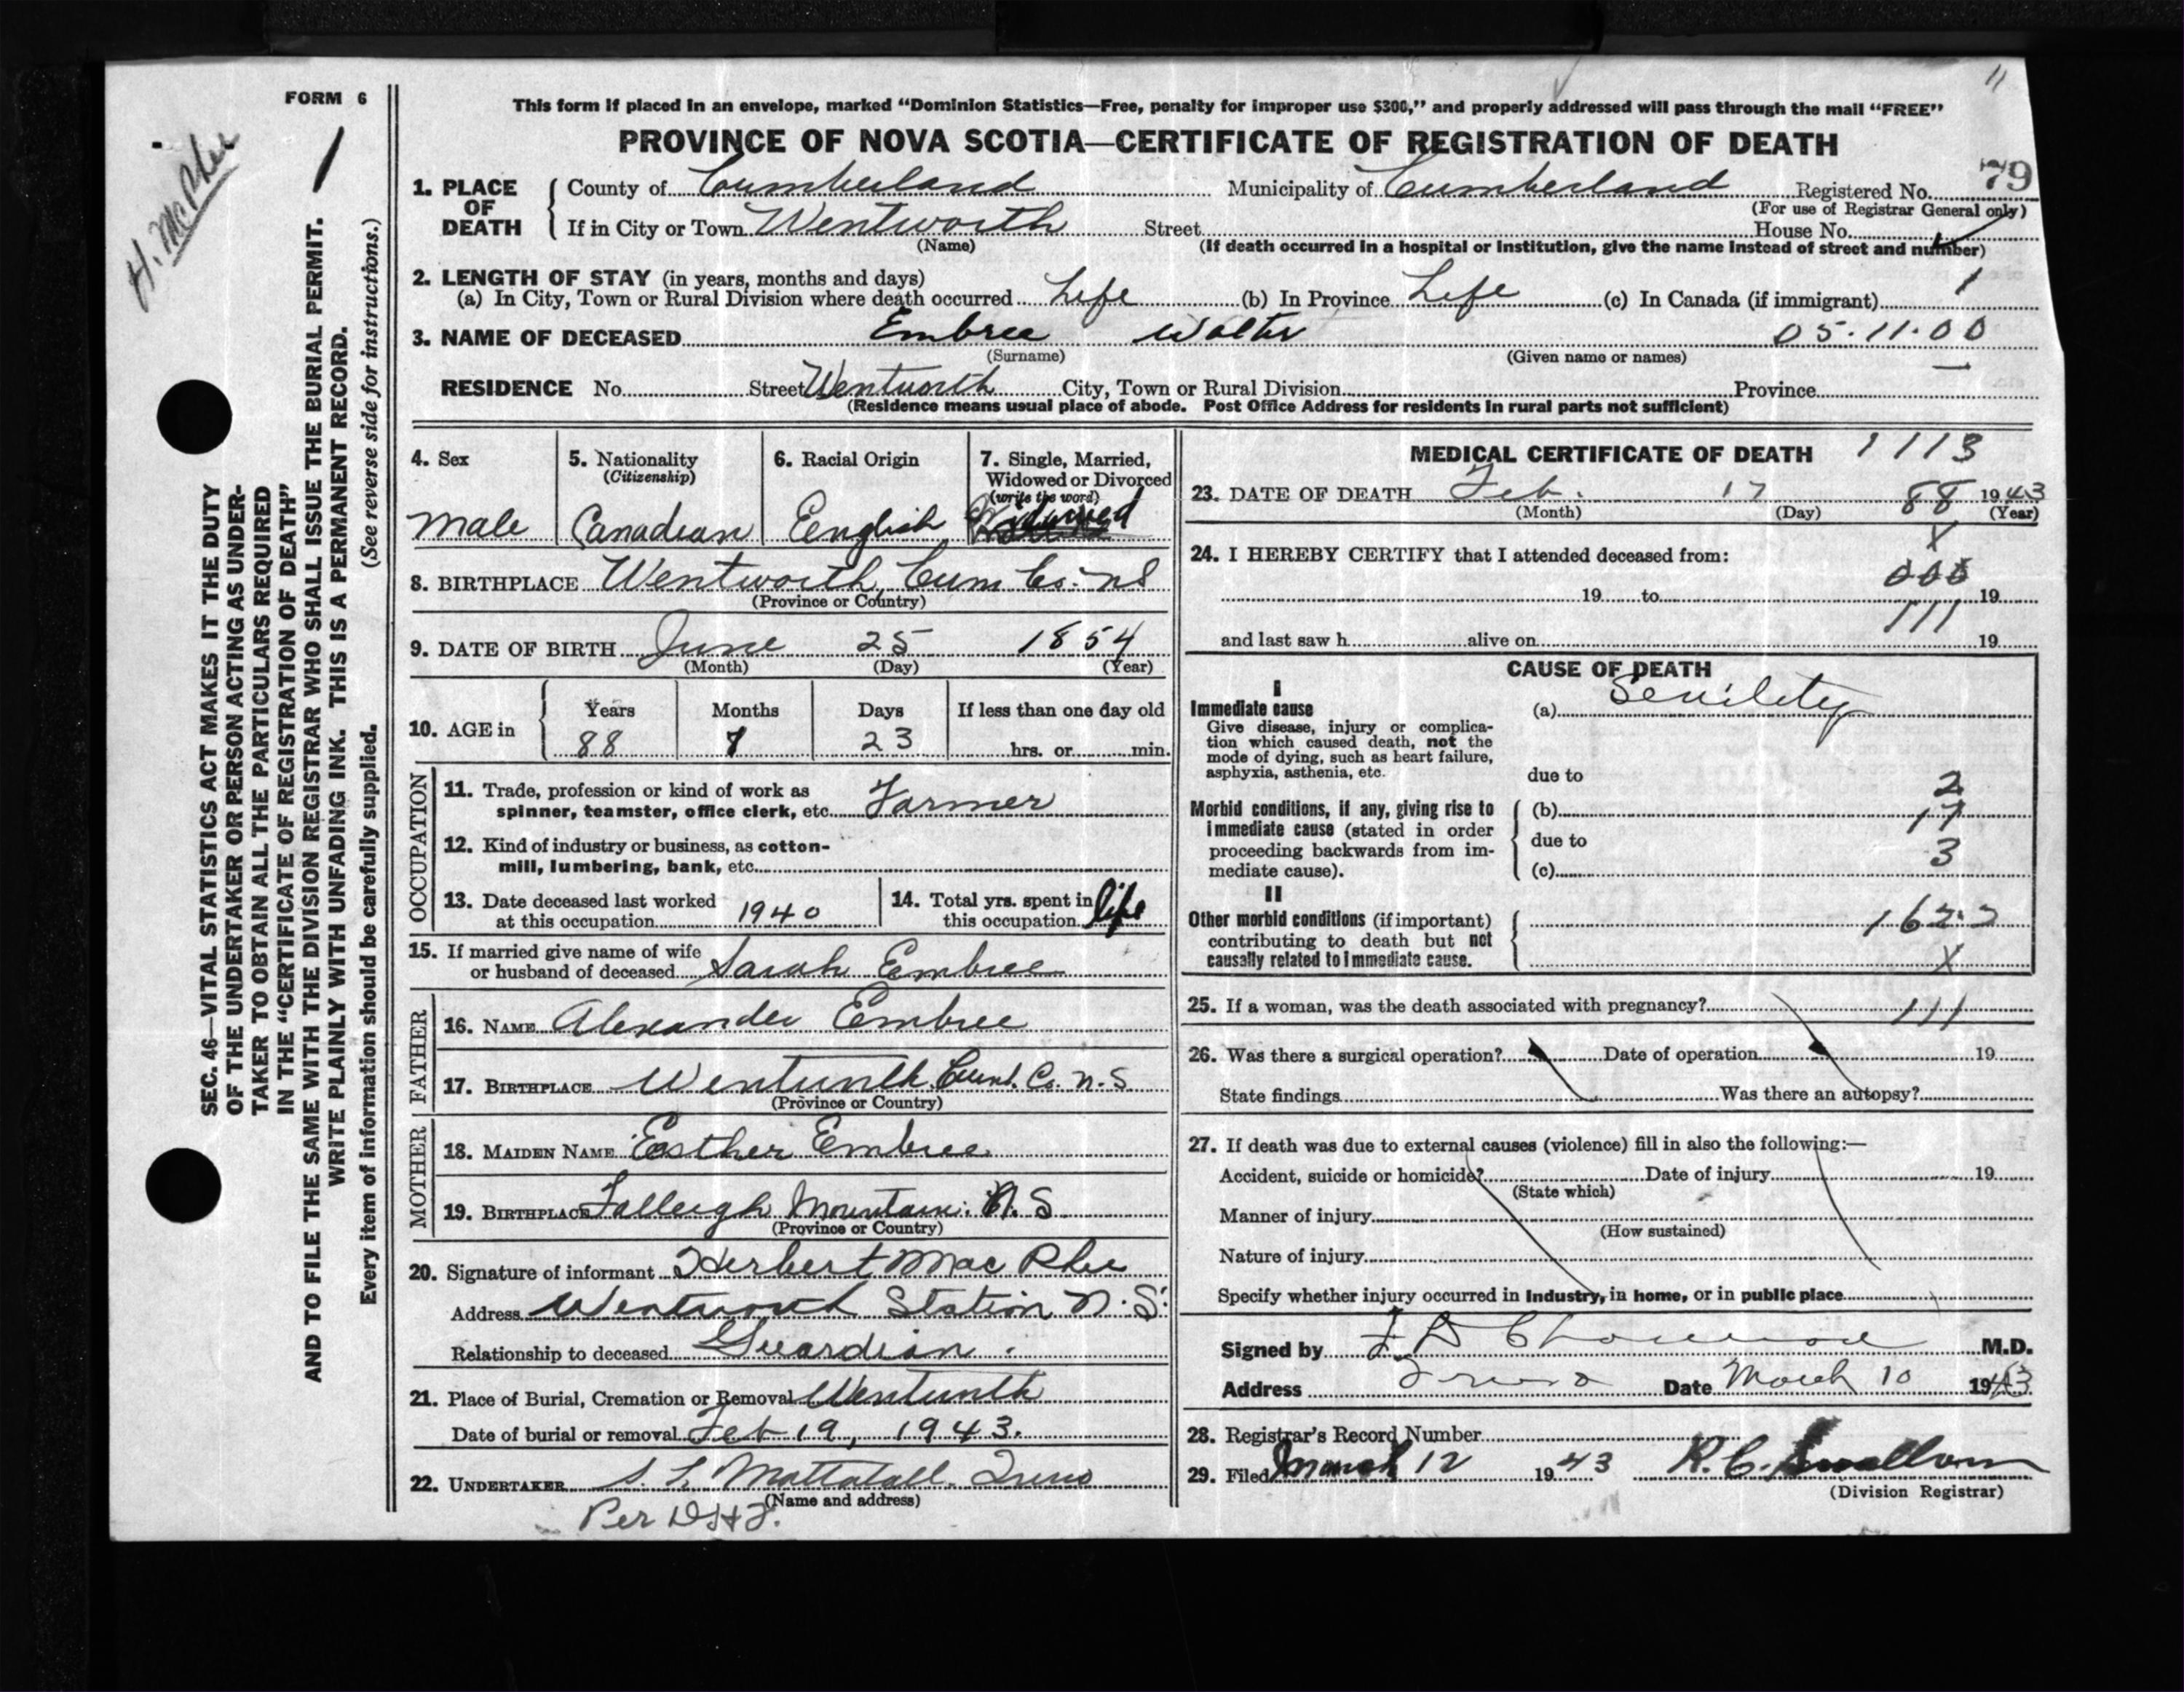 FORM 6
11
H. McPhee
1
This form if placed in an envelope, marked "Dominion Statistics—Free, penalty for improper use $300," and properly addressed will pass through the mail "FREE"
PROVINCE OF NOVA SCOTIA—CERTIFICATE OF REGISTRATION OF DEATH
SEC. 46—VITAL STATISTICS ACT MAKES IT THE DUTY
OF THE UNDERTAKER OR PERSON ACTING AS UNDER-
TAKER TO OBTAIN ALL THE PARTICULARS REQUIRED
IN THE "CERTIFICATE OF REGISTRATION OF DEATH"
AND TO FILE THE SAME WITH THE DIVISION REGISTRAR WHO SHALL ISSUE THE BURIAL PERMIT.
WRITE PLAINLY WITH UNFADING INK. THIS IS A PERMANENT RECORD.
Every item of information should be carefully supplied. (See reverse side for instructions.)
1. PLACE OF DEATH County of Cumberland Municipality of Cumberland Registered No. 79
(For use of Registrar General only)
If in City or Town Wentworth Street House No.
(Name) (If death occurred in a hospital or institution, give the name instead of street and number)
2. LENGTH OF STAY (in years, months and days)
(a) In City, Town or Rural Division where death occurred Life (b) In Province Life (c) In Canada (if immigrant) 1
3. NAME OF DECEASED Embree Walter 05.11.00
(Surname) (Given name or names)
RESIDENCE No. Street Wentworth City, Town or Rural Division Province
(Residence means usual place of abode. Post Office Address for residents in rural parts not sufficient)
4. Sex 5. Nationality 6. Racial Origin 7. Single, Married,
(Citizenship) Widowed or Divorced
(write the word)
Male Canadian Eenglish Widowed
8. BIRTHPLACE Wentworth, Cum Co. NS
(Province or Country)
9. DATE OF BIRTH June 25 1854
(Month) (Day) (Year)
10. AGE in Years Months Days If less than one day old
88 7 23 hrs. or min.
OCCUPATION
11. Trade, profession or kind of work as
spinner, teamster, office clerk, etc. Farmer
12. Kind of industry or business, as cotton-
mill, lumbering, bank, etc.
13. Date deceased last worked
at this occupation 1940
14. Total yrs. spent in
this occupation life
15. If married give name of wife
or husband of deceased Sarah Embree
FATHER
16. NAME Alexander Embree
17. BIRTHPLACE Wentworth Cum. Co. N.S
(Province or Country)
MOTHER
18. MAIDEN NAME Easther Embree
19. BIRTHPLACE Folleigh Mountain. N.S
(Province or Country)
20. Signature of informant Herbert MacPhee
Address Wentworth Station N.S.
Relationship to deceased Guardian.
21. Place of Burial, Cremation or Removal Wentworth
Date of burial or removal Feb 19, 1943.
22. UNDERTAKER Mattatall. Truro
(Name and address)
Per
MEDICAL CERTIFICATE OF DEATH 1113
23. DATE OF DEATH Feb. 17 88 1943
(Month) (Day) (Year)
X
24. I HEREBY CERTIFY that I attended deceased from:
000
19 to 19
111
and last saw h alive on 19
CAUSE OF DEATH
I
Immediate cause
Give disease, injury or complica-
tion which caused death, not the
mode of dying, such as heart failure,
asphyxia, asthenia, etc.
(a) Senility
due to
2
Morbid conditions, if any, giving rise to
immediate cause (stated in order
proceeding backwards from im-
mediate cause).
(b) 17
due to
(c) 3
II
Other morbid conditions (if important)
contributing to death but not
causally related to immediate cause.
X
25. If a woman, was the death associated with pregnancy? 111
26. Was there a surgical operation? Date of operation 19
State findings Was there an autopsy?
27. If death was due to external causes (violence) fill in also the following:—
Accident, suicide or homicide? Date of injury 19
(State which)
Manner of injury
(How sustained)
Nature of injury
Specify whether injury occurred in industry, in home, or in public place
Signed by M.D.
Address Truro Date March 10 1943
28. Registrar's Record Number
29. Filed March 12 1943 R. C.
(Division Registrar)